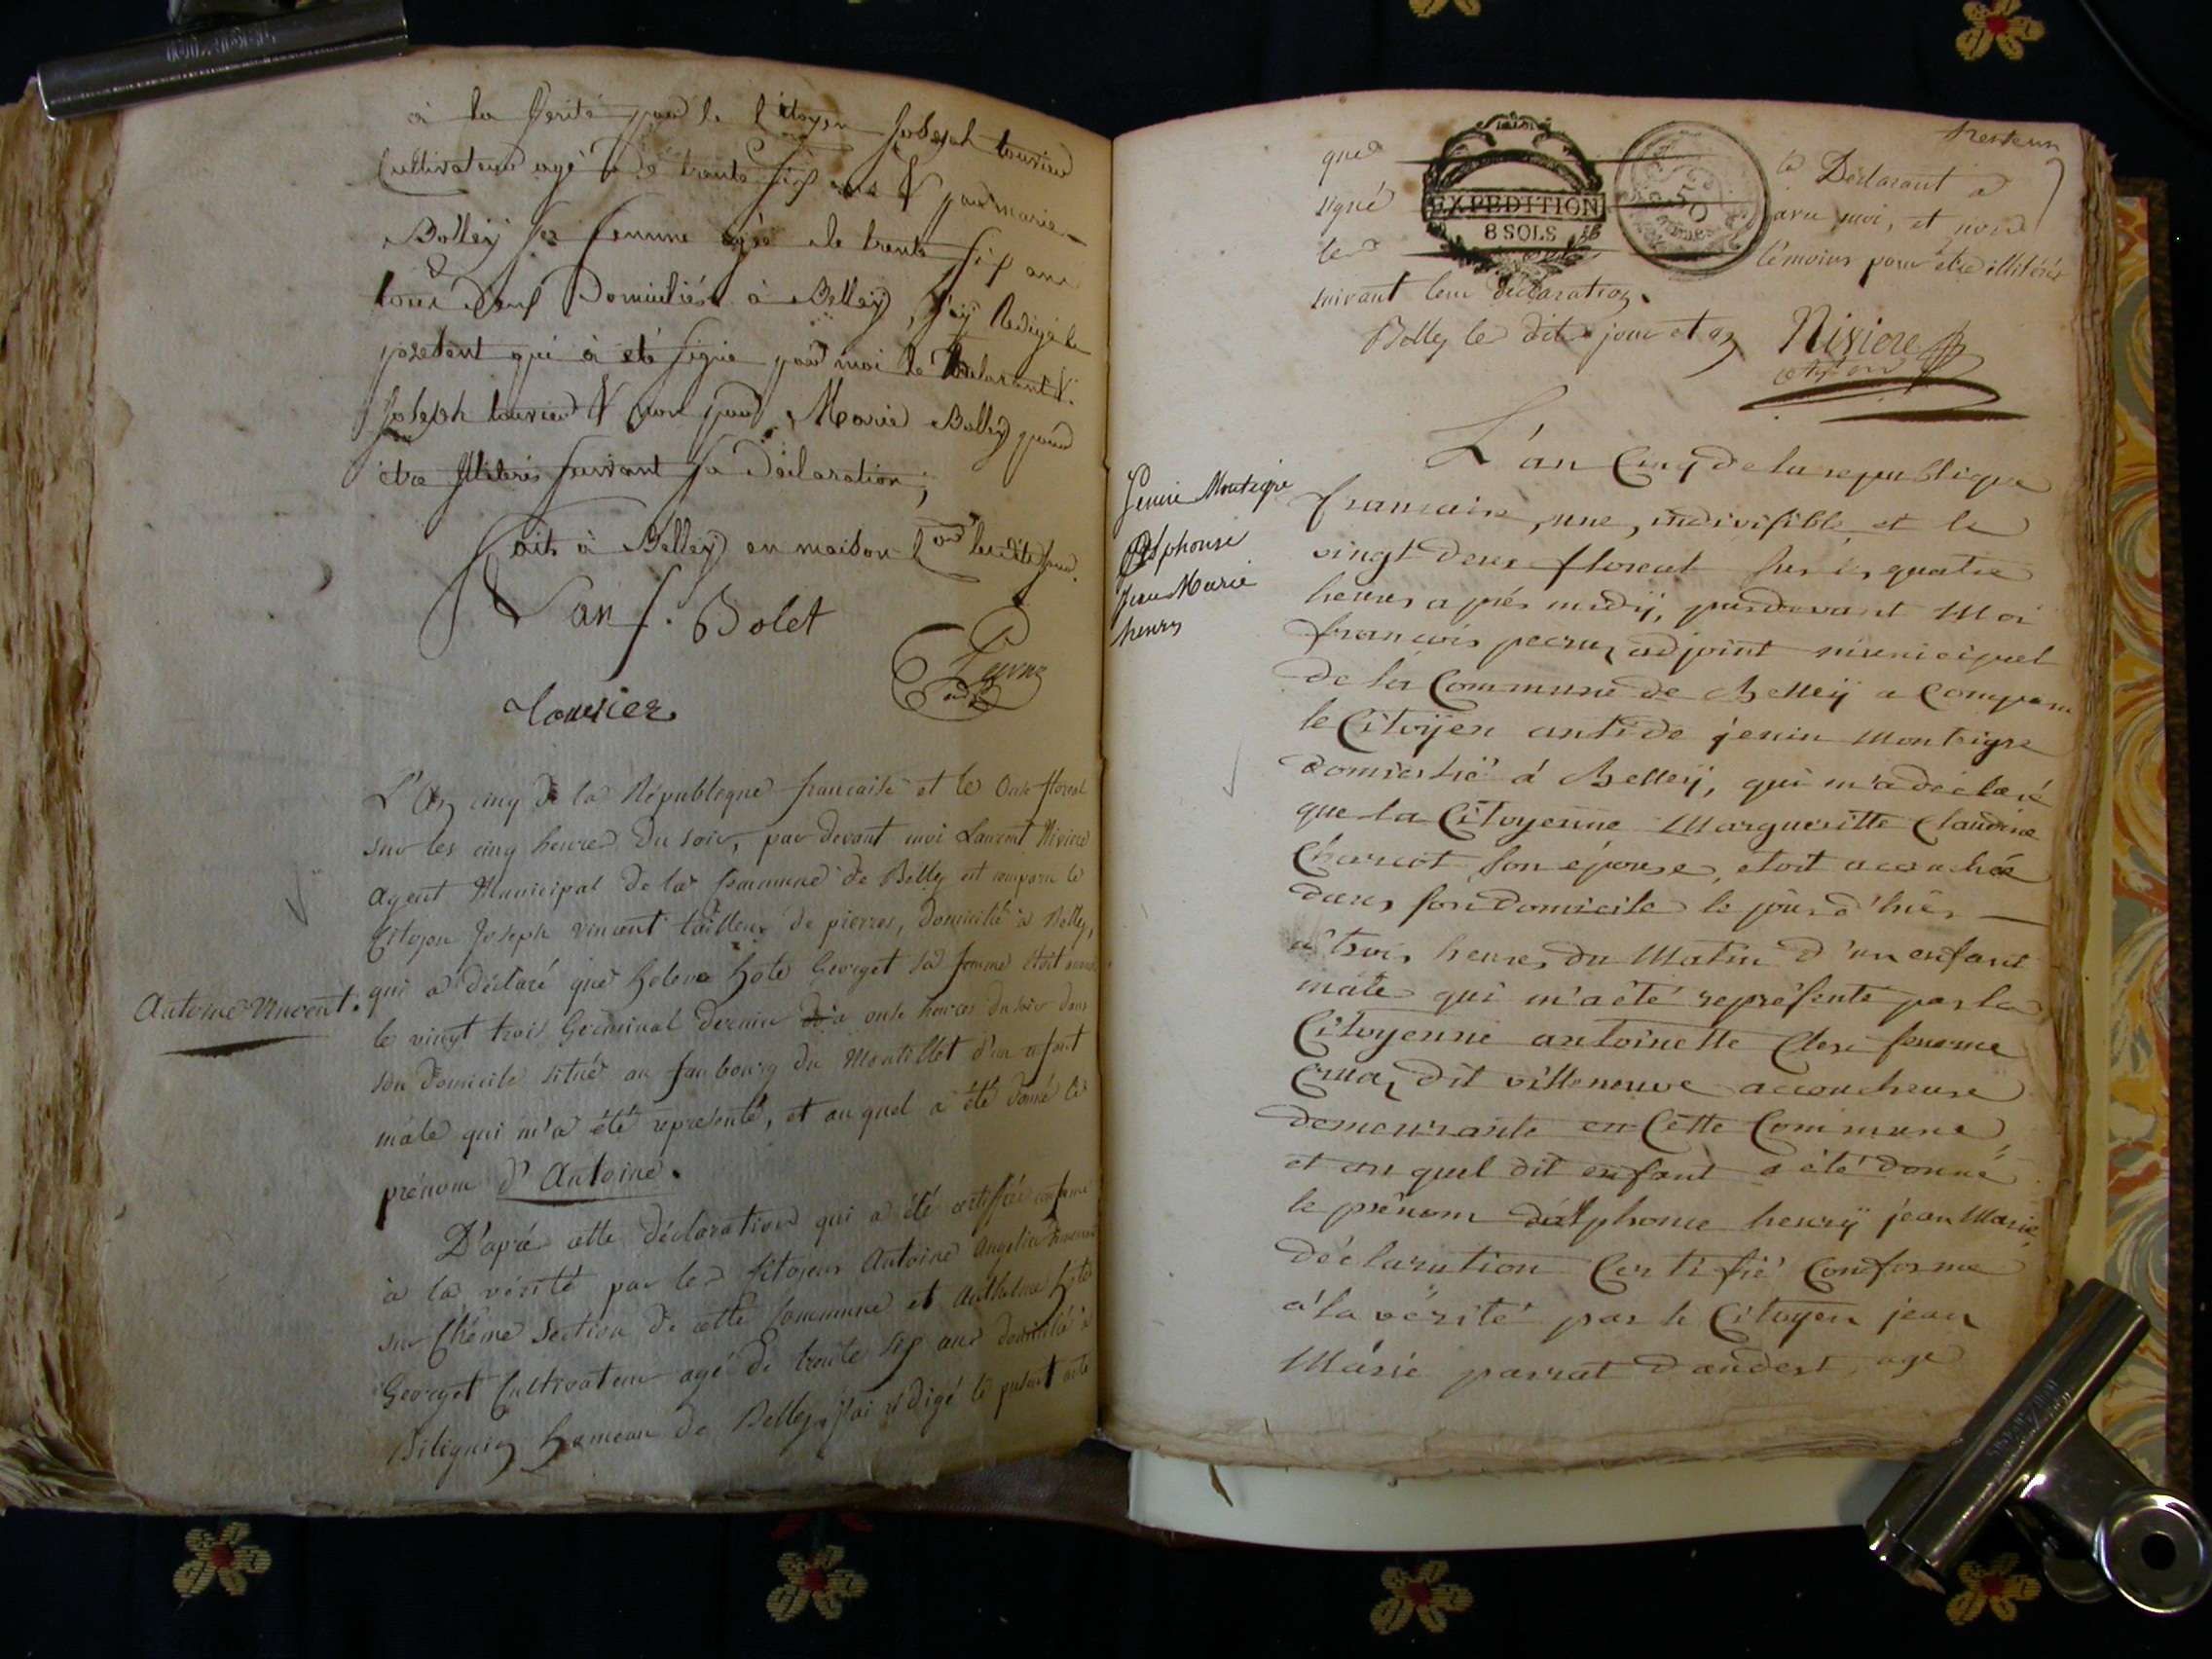 à la verité par le Citoyen Joseph tournier
Cultivateur agé de trente six ans & par marie
Bolley sa femme agée de trente six ans
tous deux Domiciliés à Belley, j'ay Redigé le
present qui à eté signé par moi le Declarant &
Joseph tournier & non par Marie Bolley pour
être illiterés suivant sa Déclaration;
fait à Belley en maison Cne. ledit jour.
Lan f. Bolet
L'an cinq de la République francaise et le Onse floreal
sur les cinq heures du soir, par devant moi Laurent Riviere
Agent Municipal de la Commune de Belley est comparu le
Citoyen Joseph Vincent tailleur de pierres, domicilié à Belley,
qui a déclaré que helene hôte Georget sa femme etoit
Antoine Vincent.
le vingt trois Germinal dernier à onse heures du soir dans
son domicile situé au faubourg du Montillet d'un enfant
mâle qui m'a été représenté, et auquel a été donné le
prénom d'Antoine.
D'aprés cette déclaration qui a été certiffiée conforme
à la vérité par les Citoyens Antoine Angelier
sur thême section de cette Commune et Anthelme hôte
Georget Cultivateur agé de trente six ans domicilié à
Bilignin hameau de Belley, j'ai rédigé le présent acte
que le Déclarant a
signé EXPEDITION avec moi, et non
les 8 SOLS témoins pour être illitérés
suivant leur déclaration.
Belley le dit jour et an Riviere
Jenin Montegre
Alphonse
Jean Marie
henry
L'an Cinq de la republique
francaise, une, indivisible, et le
vingt deux floreal sur les quatre
heures aprés midÿ, pardevant Moi
francois adjoint municipal
de la Commune de Belleÿ a Comparu
le Citoÿen antide jenin Monteigre
domicilié á Belleÿ, qui m'a déclaré
que la Citoyenne Margueritte Claudine
Charcot son épouse, etoit accouchée
dans son domicile le jour d'hiér
a trois heures du Matin d'un enfant
mâle qui m'a été représenté par la
Citoyenne antoinette Clerc femme
Cruaz dit villeneuve accoucheuse
demeurante en Cette Commune,
et au quel dit enfant a été donné
le prénom d'alphonse henrÿ jean Marie,
déclaration Certifié Conforme
a la vérité par le Citoyen jean
Marie parrat d'andert, age